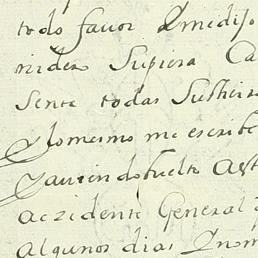 todo favor Qmediso
nider Supiera Ca
Sente todas Sus
Y lomesmo me escribe
Yavien do buelto A
Aczidente General
Algunos dias Qnom